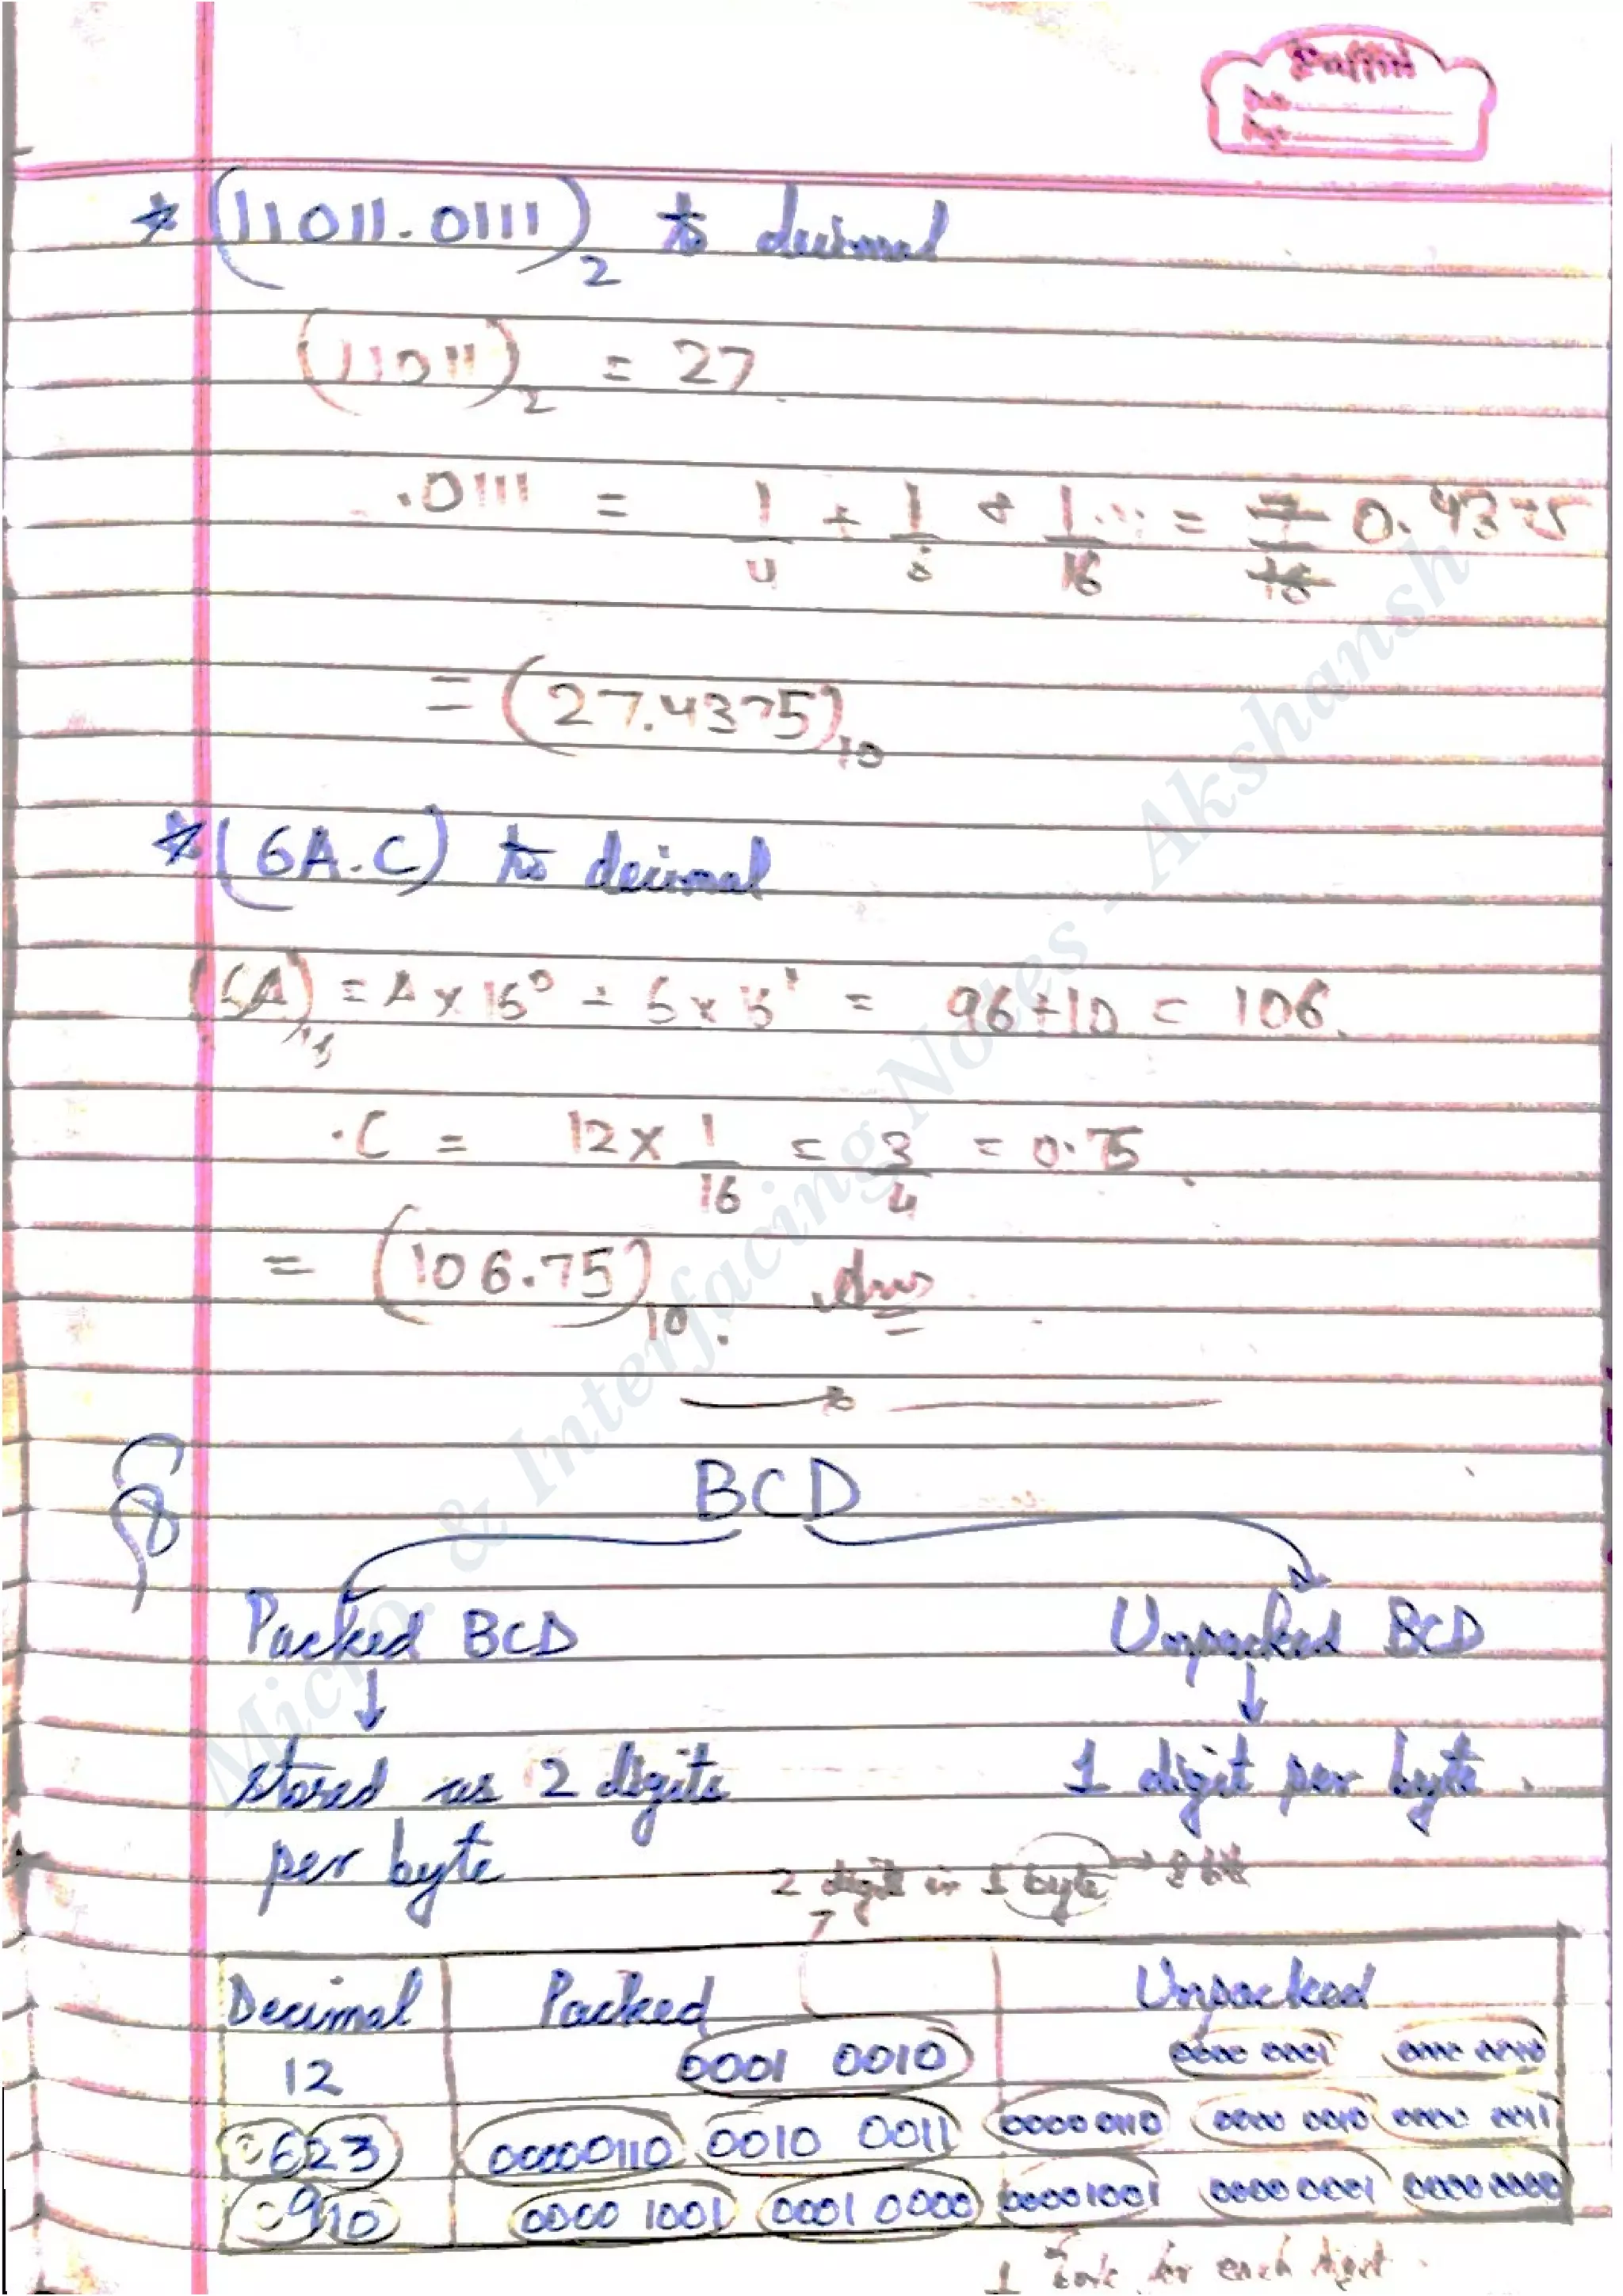 * (11011.0111)₂ to decimal
(11011)₂ = 27
.0111 = 1/4 + 1/8 + 1/16 = 0.4375
= (27.4375)₁₀
* (6A.C) to decimal
(6A)₁₆ = A × 16⁰ + 6 × 16¹ = 96+10 = 106.
.C = 12 × 1/16 = 3/4 = 0.75
= (106.75)₁₀. Ans
BCD
Packed BCD Unpacked BCD
↓ ↓
stored as 2 digits 1 digit per byte.
per byte
2 digit in 1 byte → 8 bit
Decimal Packed Unpacked
12 0001 0010 0000 0001 0000 0010
0623 00000110 0010 0011 0000 0110 0000 0010 0000 0011
0910 0000 1001 0001 0000 00001001 0000 0001 0000 0000
1 byte for each digit.
Micro. & Interfacing Notes - Akshansh